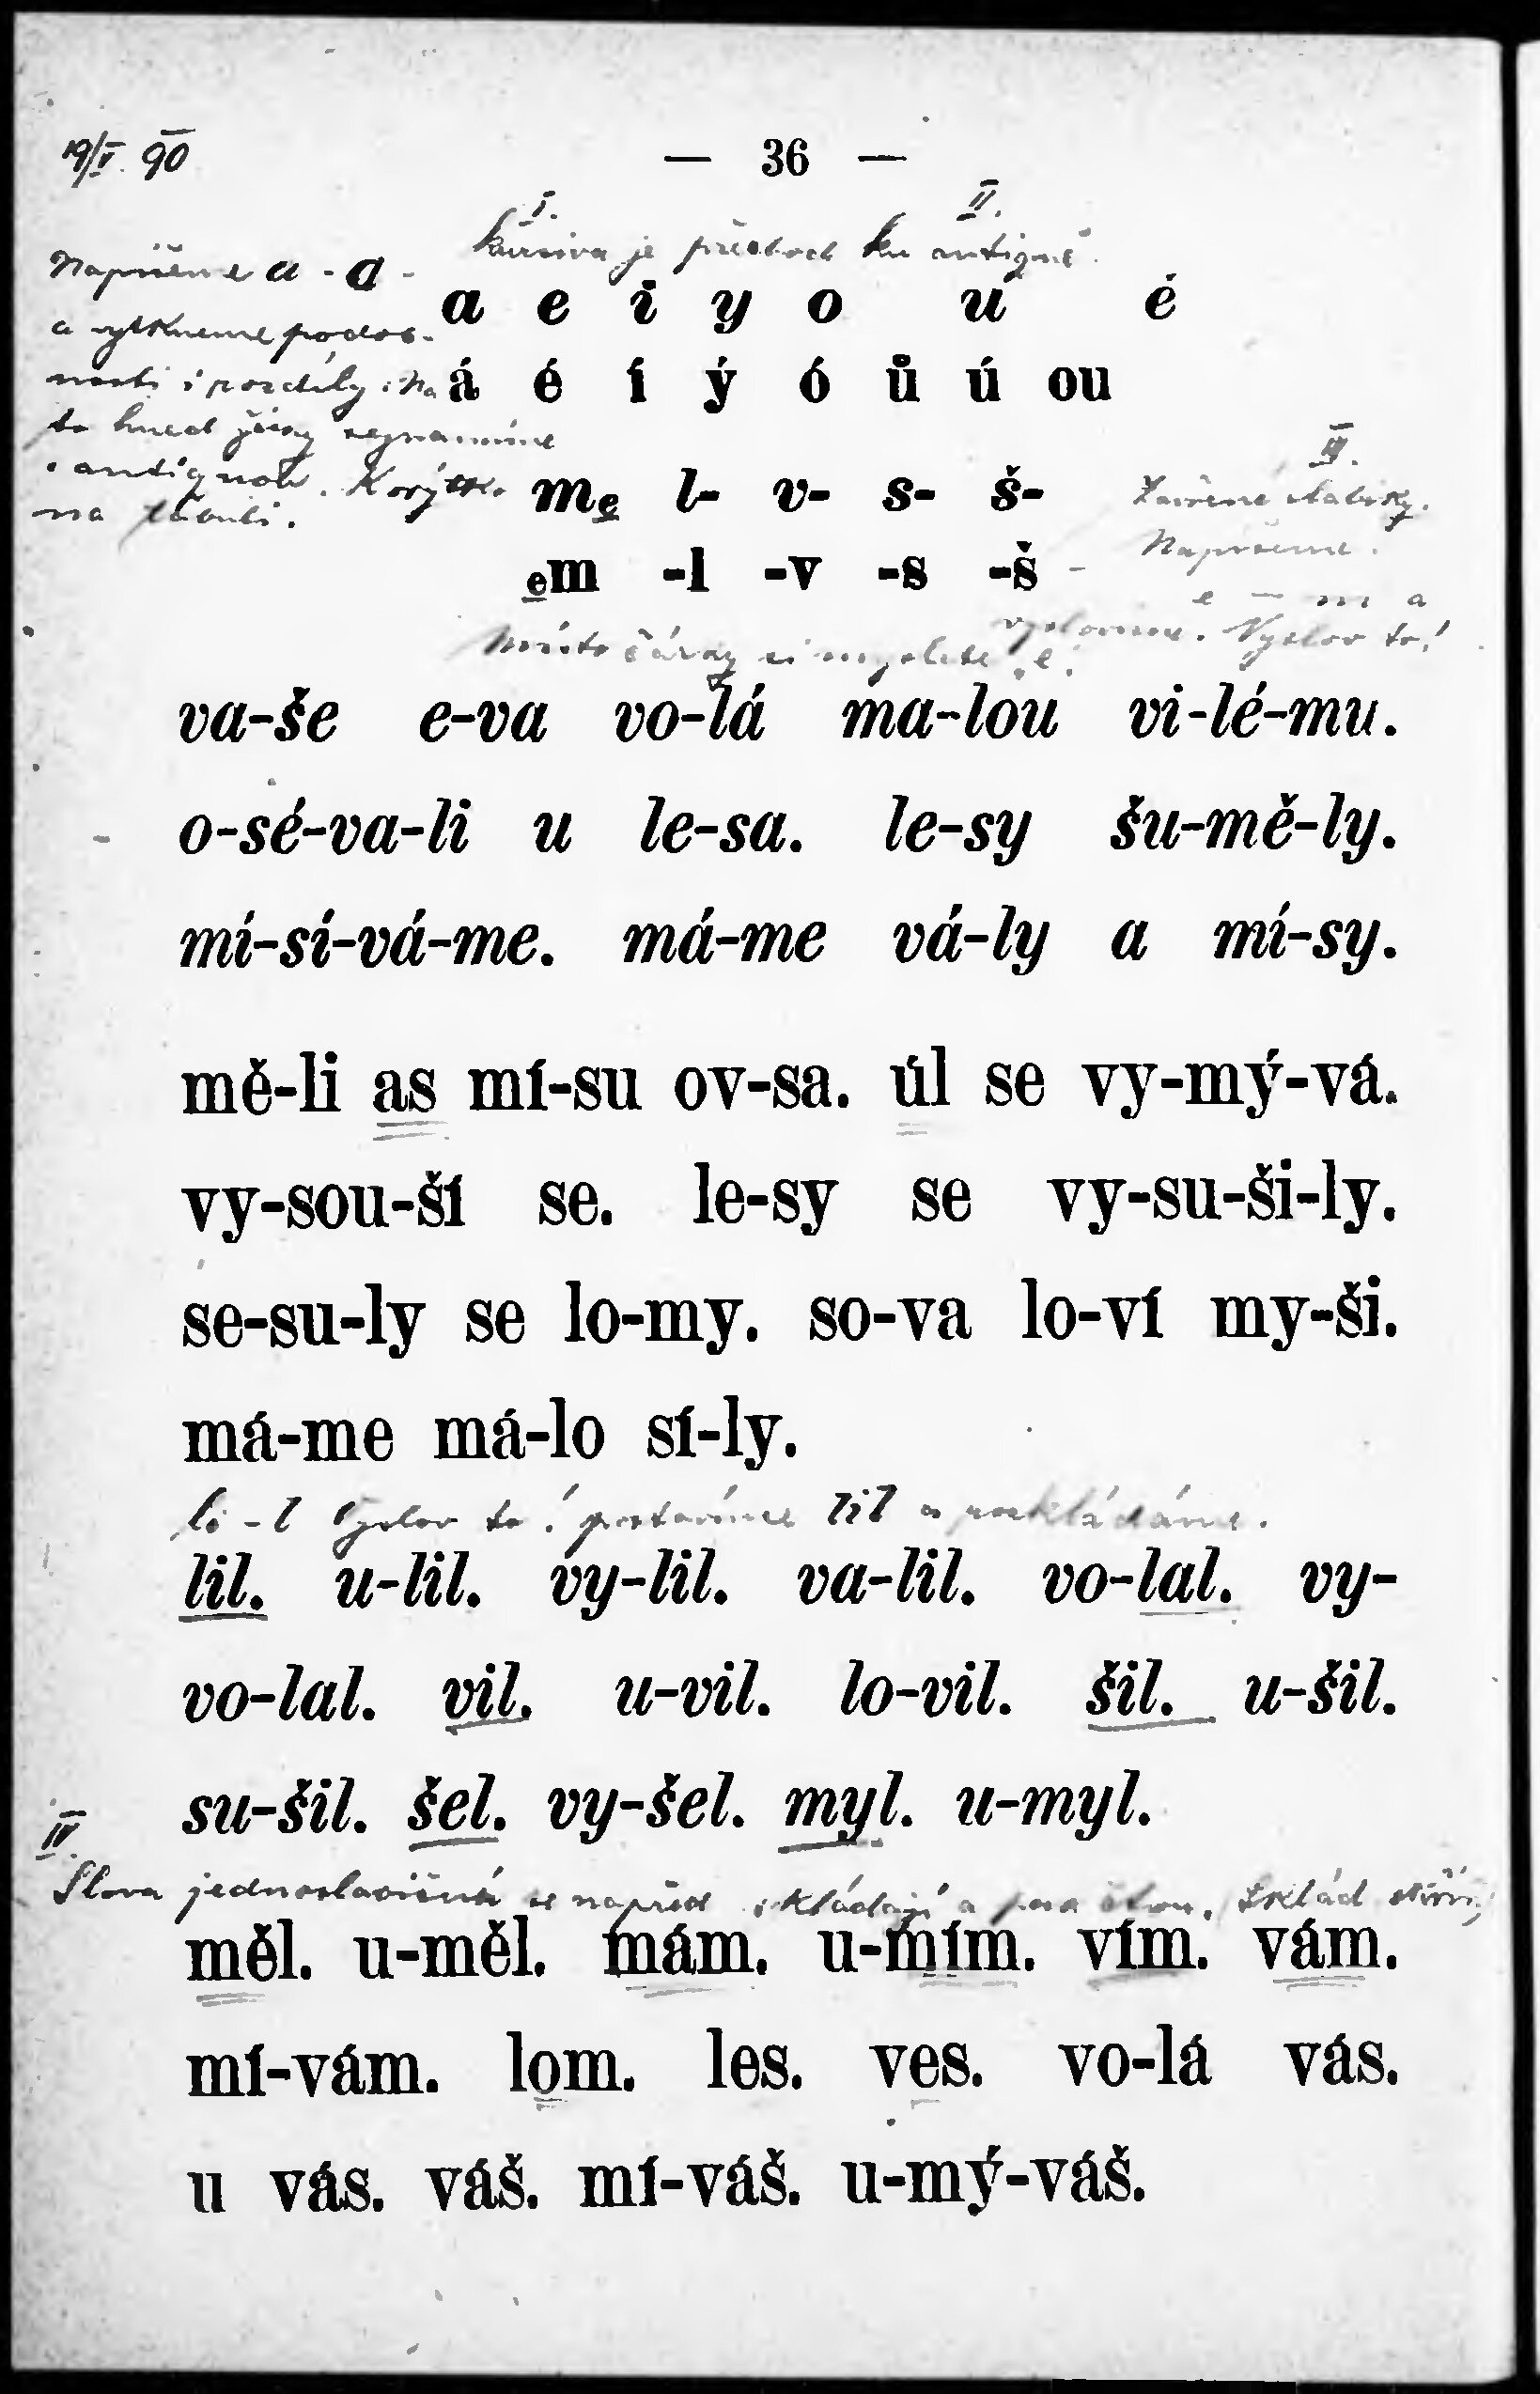 19/V. 90
— 36 —
I. II.
kursiva je přechod ku antiqně.
Napíšeme a - a -
a e i y o u é
a vytkneme podob-
nosti i rozdíly. Na
á é í ý ó ů ú ou
to hned žáky seznamíme
III.
s antiquou. Korýtko
na tabuli.
me l- v- s- š-
Zavřené slabiky.
Napíšeme.
em -l -v -s -š
e — m a
vyslovíme. Vyslov to!
Místo čárky si myslete „e".
va-še e-va vo-lá ma-lou vi-lé-mu.
o-sé-va-li u le-sa. le-sy šu-mě-ly.
mí-sí-vá-me. má-me vá-ly a mí-sy.
mě-li as mí-su ov-sa. úl se vy-mý-vá.
vy-sou-ší se. le-sy se vy-su-ši-ly.
se-su-ly se lo-my. so-va lo-ví my-ši.
má-me má-lo sí-ly.
li - l Vyslov to! postavíme lil a rozkládáme.
lil. u-lil. vy-lil. va-lil. vo-lal. vy-
vo-lal. vil. u-vil. lo-vil. šil. u-šil.
su-šil. šel. vy-šel. myl. u-myl.
IV.
Slova jednoslabičná se napřed skládají a pak čtou.
měl. u-měl. mám. u-mím. vím. vám.
mí-vám. lom. les. ves. vo-lá vás.
u vás. váš. mí-váš. u-mý-váš.